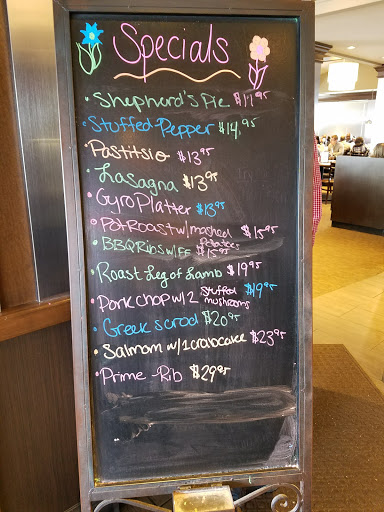 Specials
Shephard's Pie $17.95
Stuffed-Pepper $14.95
Pastitsio $13.95
Lasagna $13.95
Gyro Platter $13.95
Pot Roast w/mashed Potatoes $15.95
BBQ Ribs w/FF $15.95
Roast Leg of Lamb $19.95
Pork chop w/2 Stuffed mushrooms $19.95
Greek scrod $20.95
Salmom w/1 crabcake $23.95
Prime-Rib $29.95